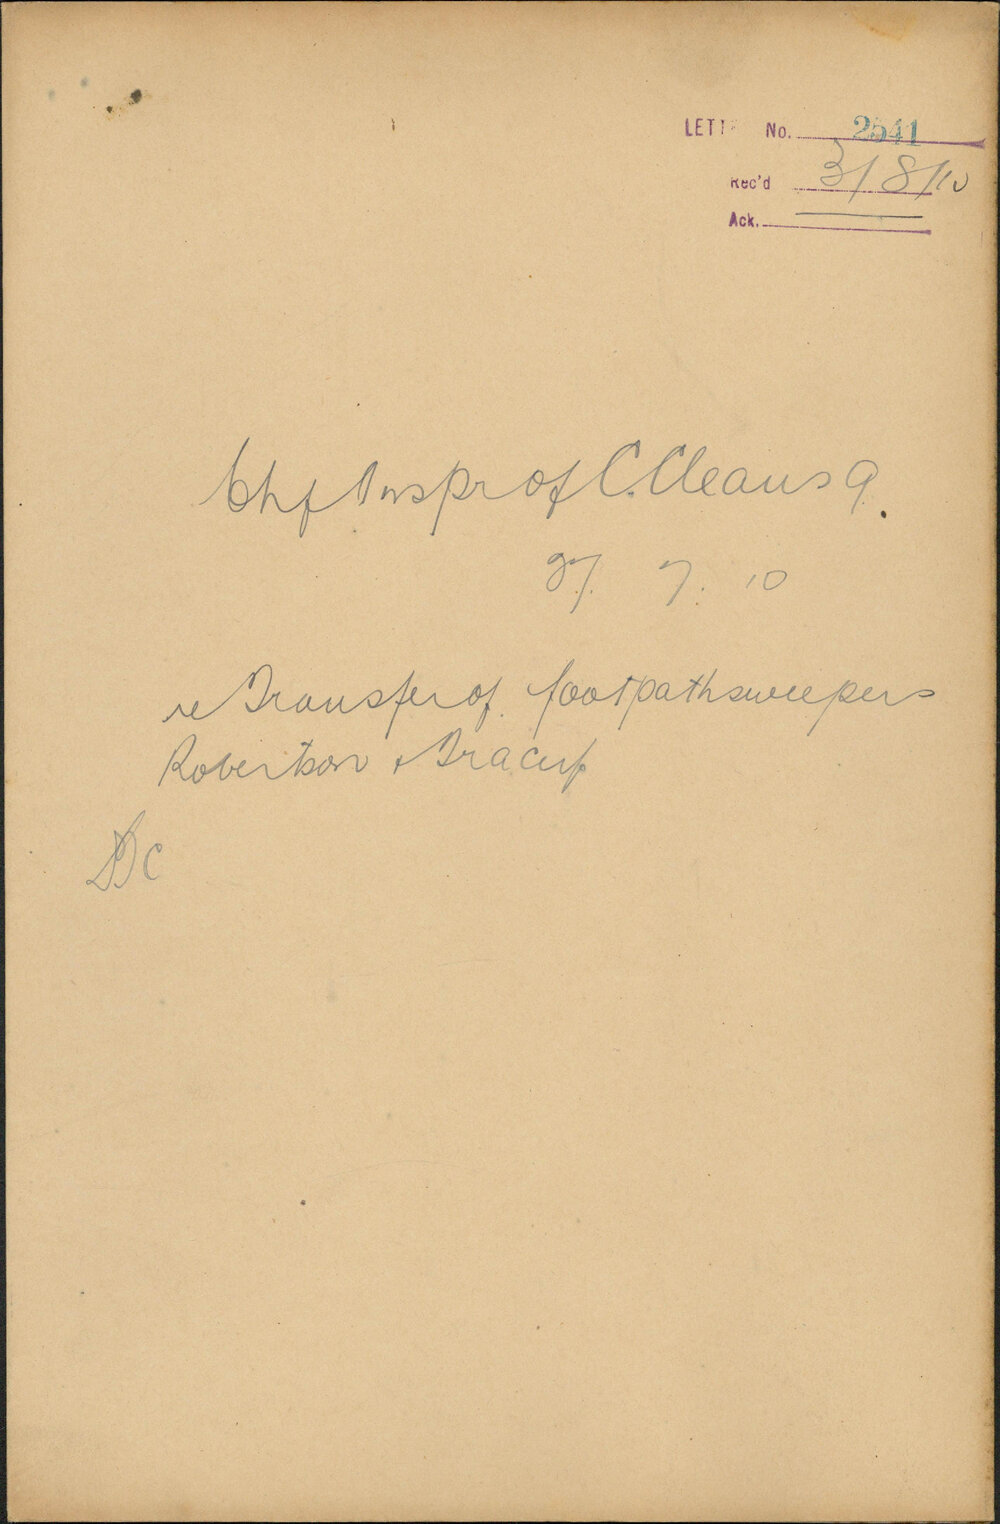 LETT No. 2541
Rec'd 3/8/10
Ack.
Chf Inspr of C. Cleansg.
27. 7. 10
re Transfer of footpathsweepers
Robertson &